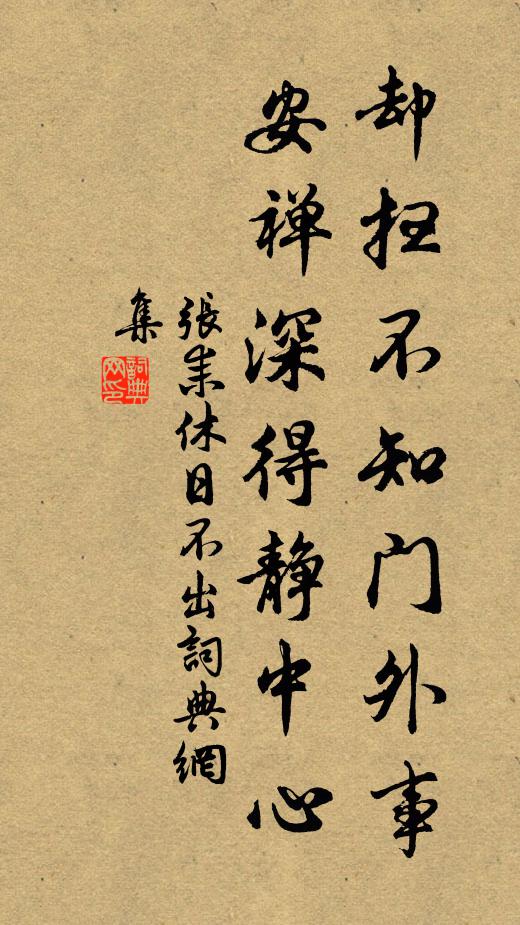 却扫不知门外事
安禅深得静中心
張耒休日不出詞典網
集
詞典網印